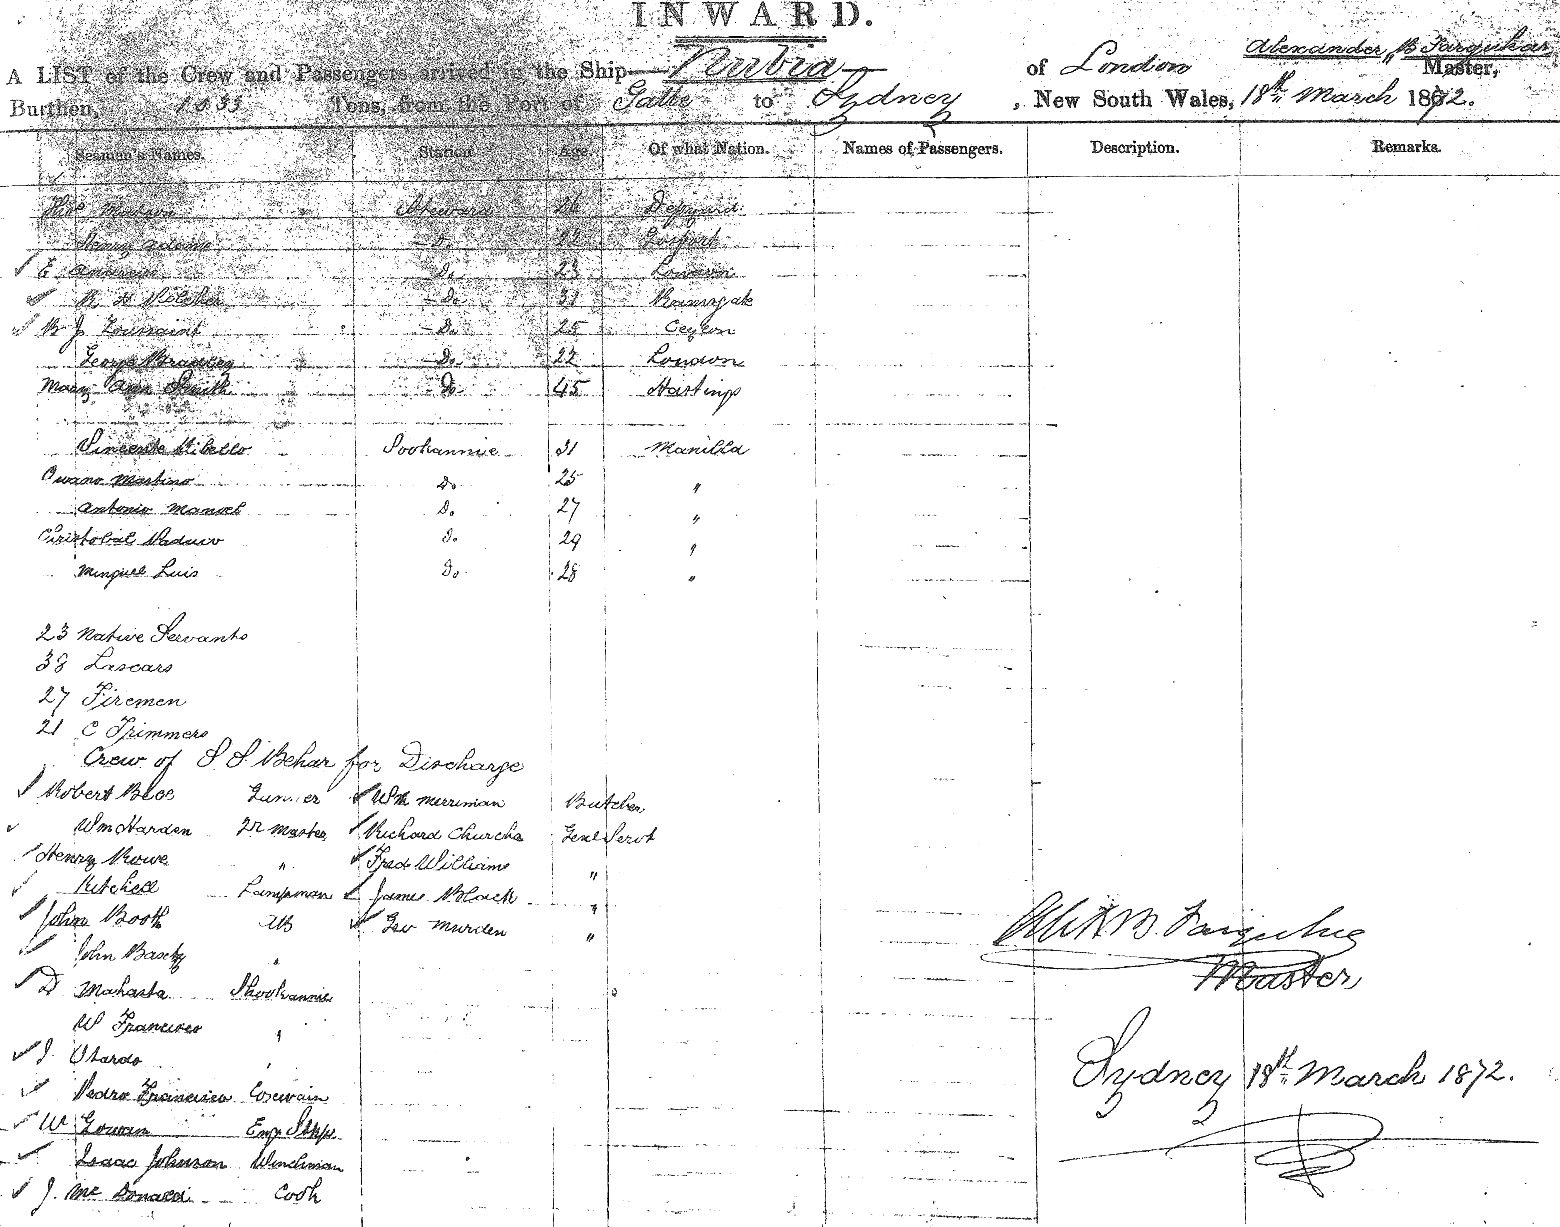 INWARD.
A LIST of the Crew and Passengers arrived in the Ship Nubia of London Alexander B Farquhar Master,
Burthen, Tons, from the Port of Galle to Sydney, New South Wales, 18th March 1872.
Seaman's Names. Station Age Of what Nation. Names of Passengers. Description. Remarks.
Steward 26
Henry Adams Do 22 Gosport
E Do 23 London
R H Pilcher Do 31 Ramsgate
B J Toussaint Do 25 Ceylon
George Bradley Do 22 London
Mary Ann Smith Do 45 Hastings
Vincente Ribello Sookannie 31 Manilla
Martino Do 25 "
Antonio Manoel Do 27 "
Cristobal Do 29 "
Minguel Luis Do 28 "
23 Native Servants
38 Lascars
27 Firemen
21 C Trimmers
Crew of S S Behar for Discharge
Robert Gunner Wm Merriman Butcher
Wm Harden 2r Master Richard Genl Servt
Henry Rowe " Fredk Williams "
Kitchell Lampman James Black "
John Booth AB Geo Murden "
John "
D Shookannie
W Francisco "
J "
Pedro Francisco Coxwain
W Gowan
Isaac Johnson Winchman
J. Mc Donald Cook
Alex B. Farquhar
Master
Sydney 18th March 1872.